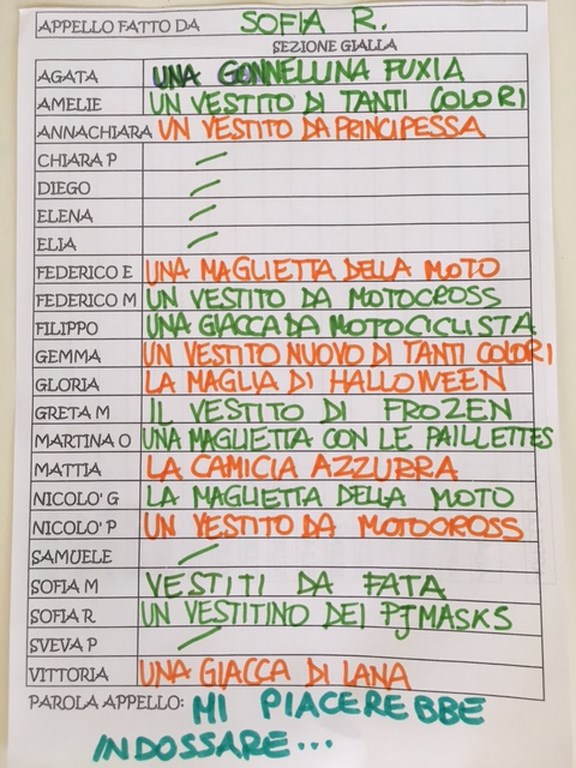 APPELLO FATTO DA SOFIA R.
SEZIONE GIALLA
AGATA UNA GONNELLINA FUXIA
AMELIE UN VESTITO DI TANTI COLORI
ANNACHIARA UN VESTITO DA PRINCIPESSA
CHIARA P
DIEGO
ELENA
ELIA
FEDERICO E UNA MAGLIETTA DELLA MOTO
FEDERICO M UN VESTITO DA MOTOCROSS
FILIPPO UNA GIACCA DA MOTOCICLISTA
GEMMA UN VESTITO NUOVO DI TANTI COLORI
GLORIA LA MAGLIA DI HALLOWEEN
GRETA M IL VESTITO DI FROZEN
MARTINA O UNA MAGLIETTA CON LE PAILLETTES
MATTIA LA CAMICIA AZZURRA
NICOLO' G LA MAGLIETTA DELLA MOTO
NICOLO' P UN VESTITO DA MOTOCROSS
SAMUELE
SOFIA M VESTITI DA FATA
SOFIA R UN VESTITINO DEI PJMASKS
SVEVA P
VITTORIA UNA GIACCA DI LANA
PAROLA APPELLO: MI PIACEREBBE
INDOSSARE...